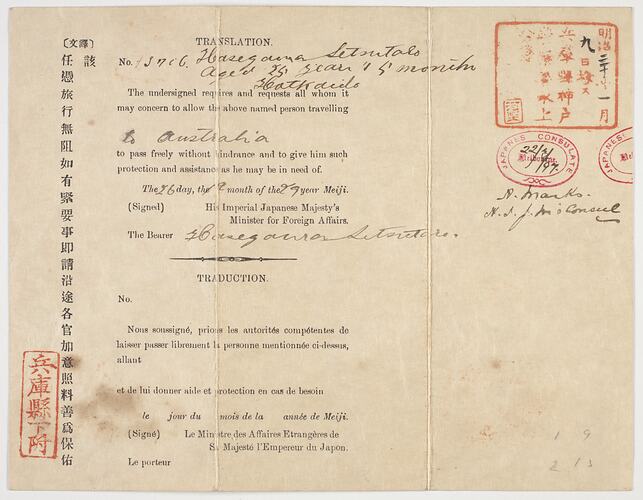 〔譯文〕
該
任憑旅行無阻如有緊要事即請沿途各官加意照料善爲保佑
兵庫縣下附
TRANSLATION.
No. 13706. Hasegawa Setsutaro
aged 25 year 5 month
Hokkaido
The undersigned requires and requests all whom it
may concern to allow the above named person travelling
to Australia
to pass freely without hindrance and to give him such
protection and assistance as he may be in need of.
The 26 day, the 12 month of the 29 year Meiji.
(Signed) His Imperial Japanese Majesty's
Minister for Foreign Affairs.
The Bearer Hasegawa Setsutaro.
TRADUCTION.
No.
Nous soussigné, prions les autorités compétentes de
laisser passer librement la personne mentionnée ci-dessus,
allant
et de lui donner aide et protection en cas de besoin
le jour du mois de la année de Meiji.
(Signé) Le Ministre des Affaires Etrangères de
Sa Majesté l'Empereur du Japon.
Le porteur
明治三十年一月
九日
兵庫縣神戸
水上
JAPANESE CONSULATE
Melbourne
22/2/97.
JAPAN
A. Marks.
H. I. J. M's Consul
1 9
2 1 3